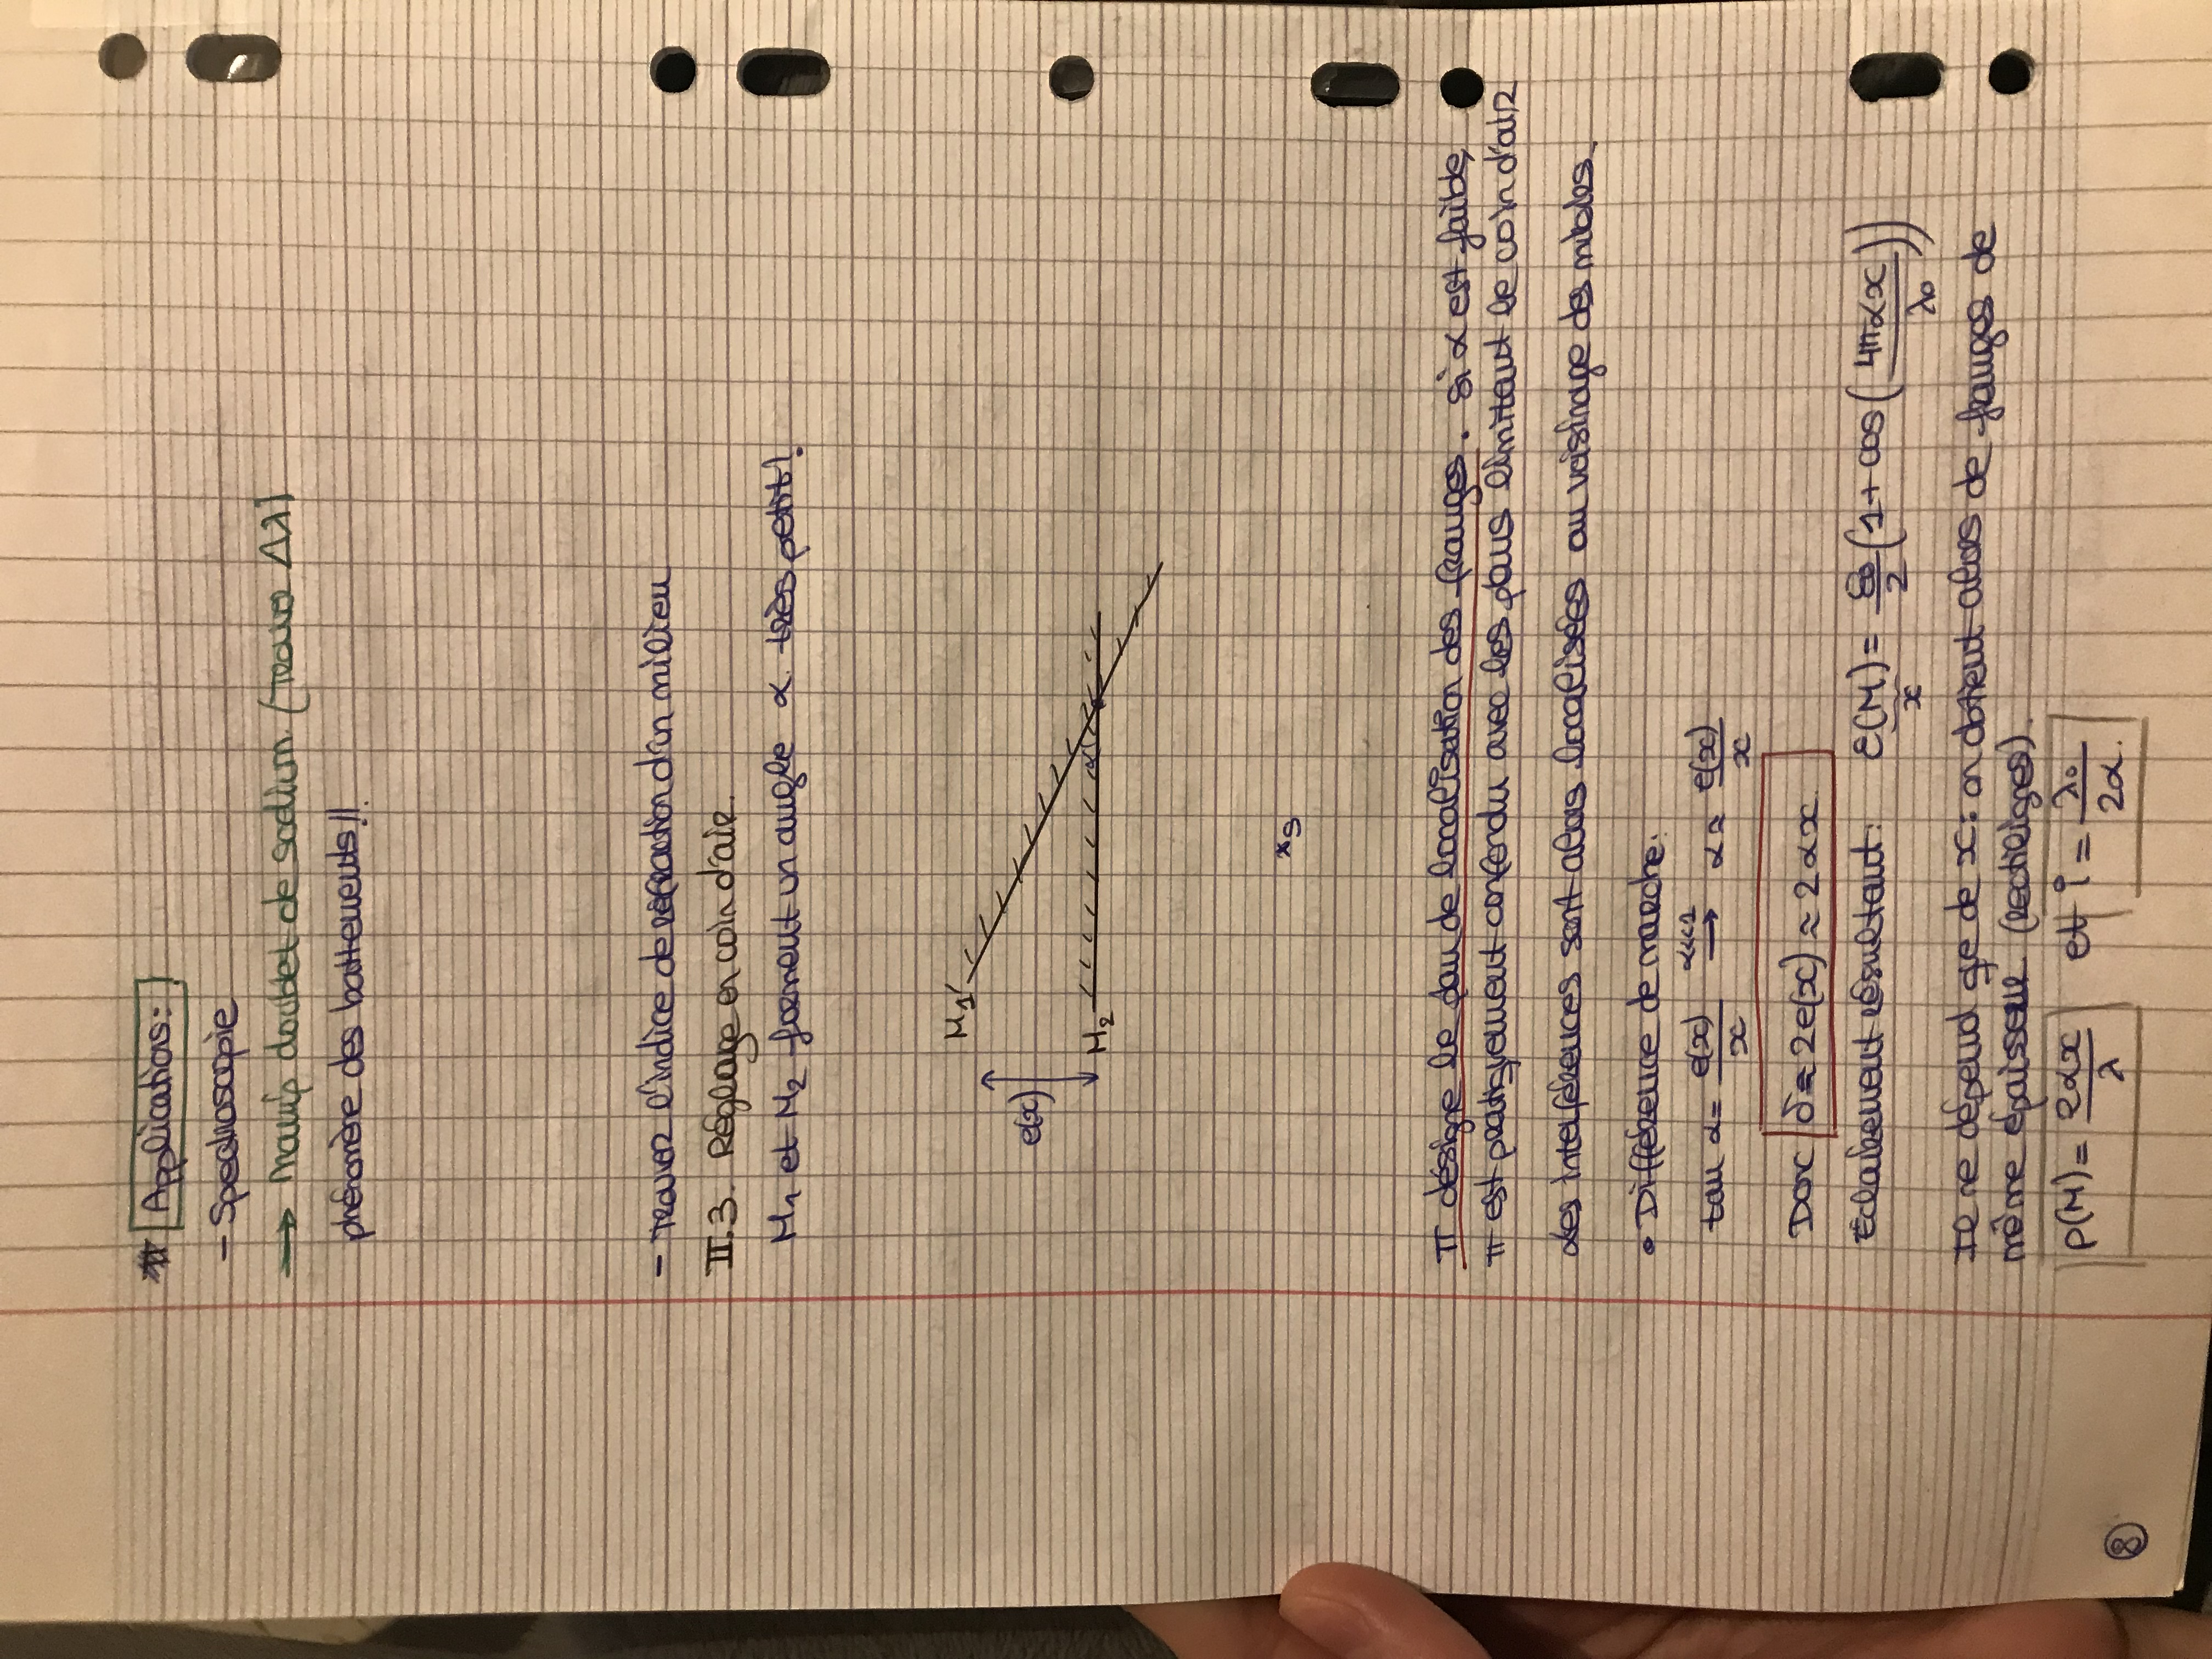 Applications:
- Spectroscopie
→ Manip doublet de sodium (trouver Δλ)
phénomène des battements!!
- Trouver l'indice de réfraction d'un milieu
II.3. Réglage en coin d'air.
M₁ et M₂ forment un angle α très petit!
M₁'
e(x)
M₂
α
S
π désigne le plan de localisation des franges. Si α est faible,
π est pratiquement confondu avec les plans limitant le coin d'air
Les interférences sont alors localisées au voisinage des miroirs.
• Différence de marche:
tan α = e(x)/x →(α<<1) α ≈ e(x)/x
Donc δ ≈ 2e(x) ≈ 2αx.
Eclairement résultant: ε(M) = ε₀/2 (1 + cos(4παx/λ₀))
x
Il ne dépend que de x: on obtient alors de franges de
même épaisseur (rectilignes).
p(M) = 2αx/λ et i = λ₀/2α.
8